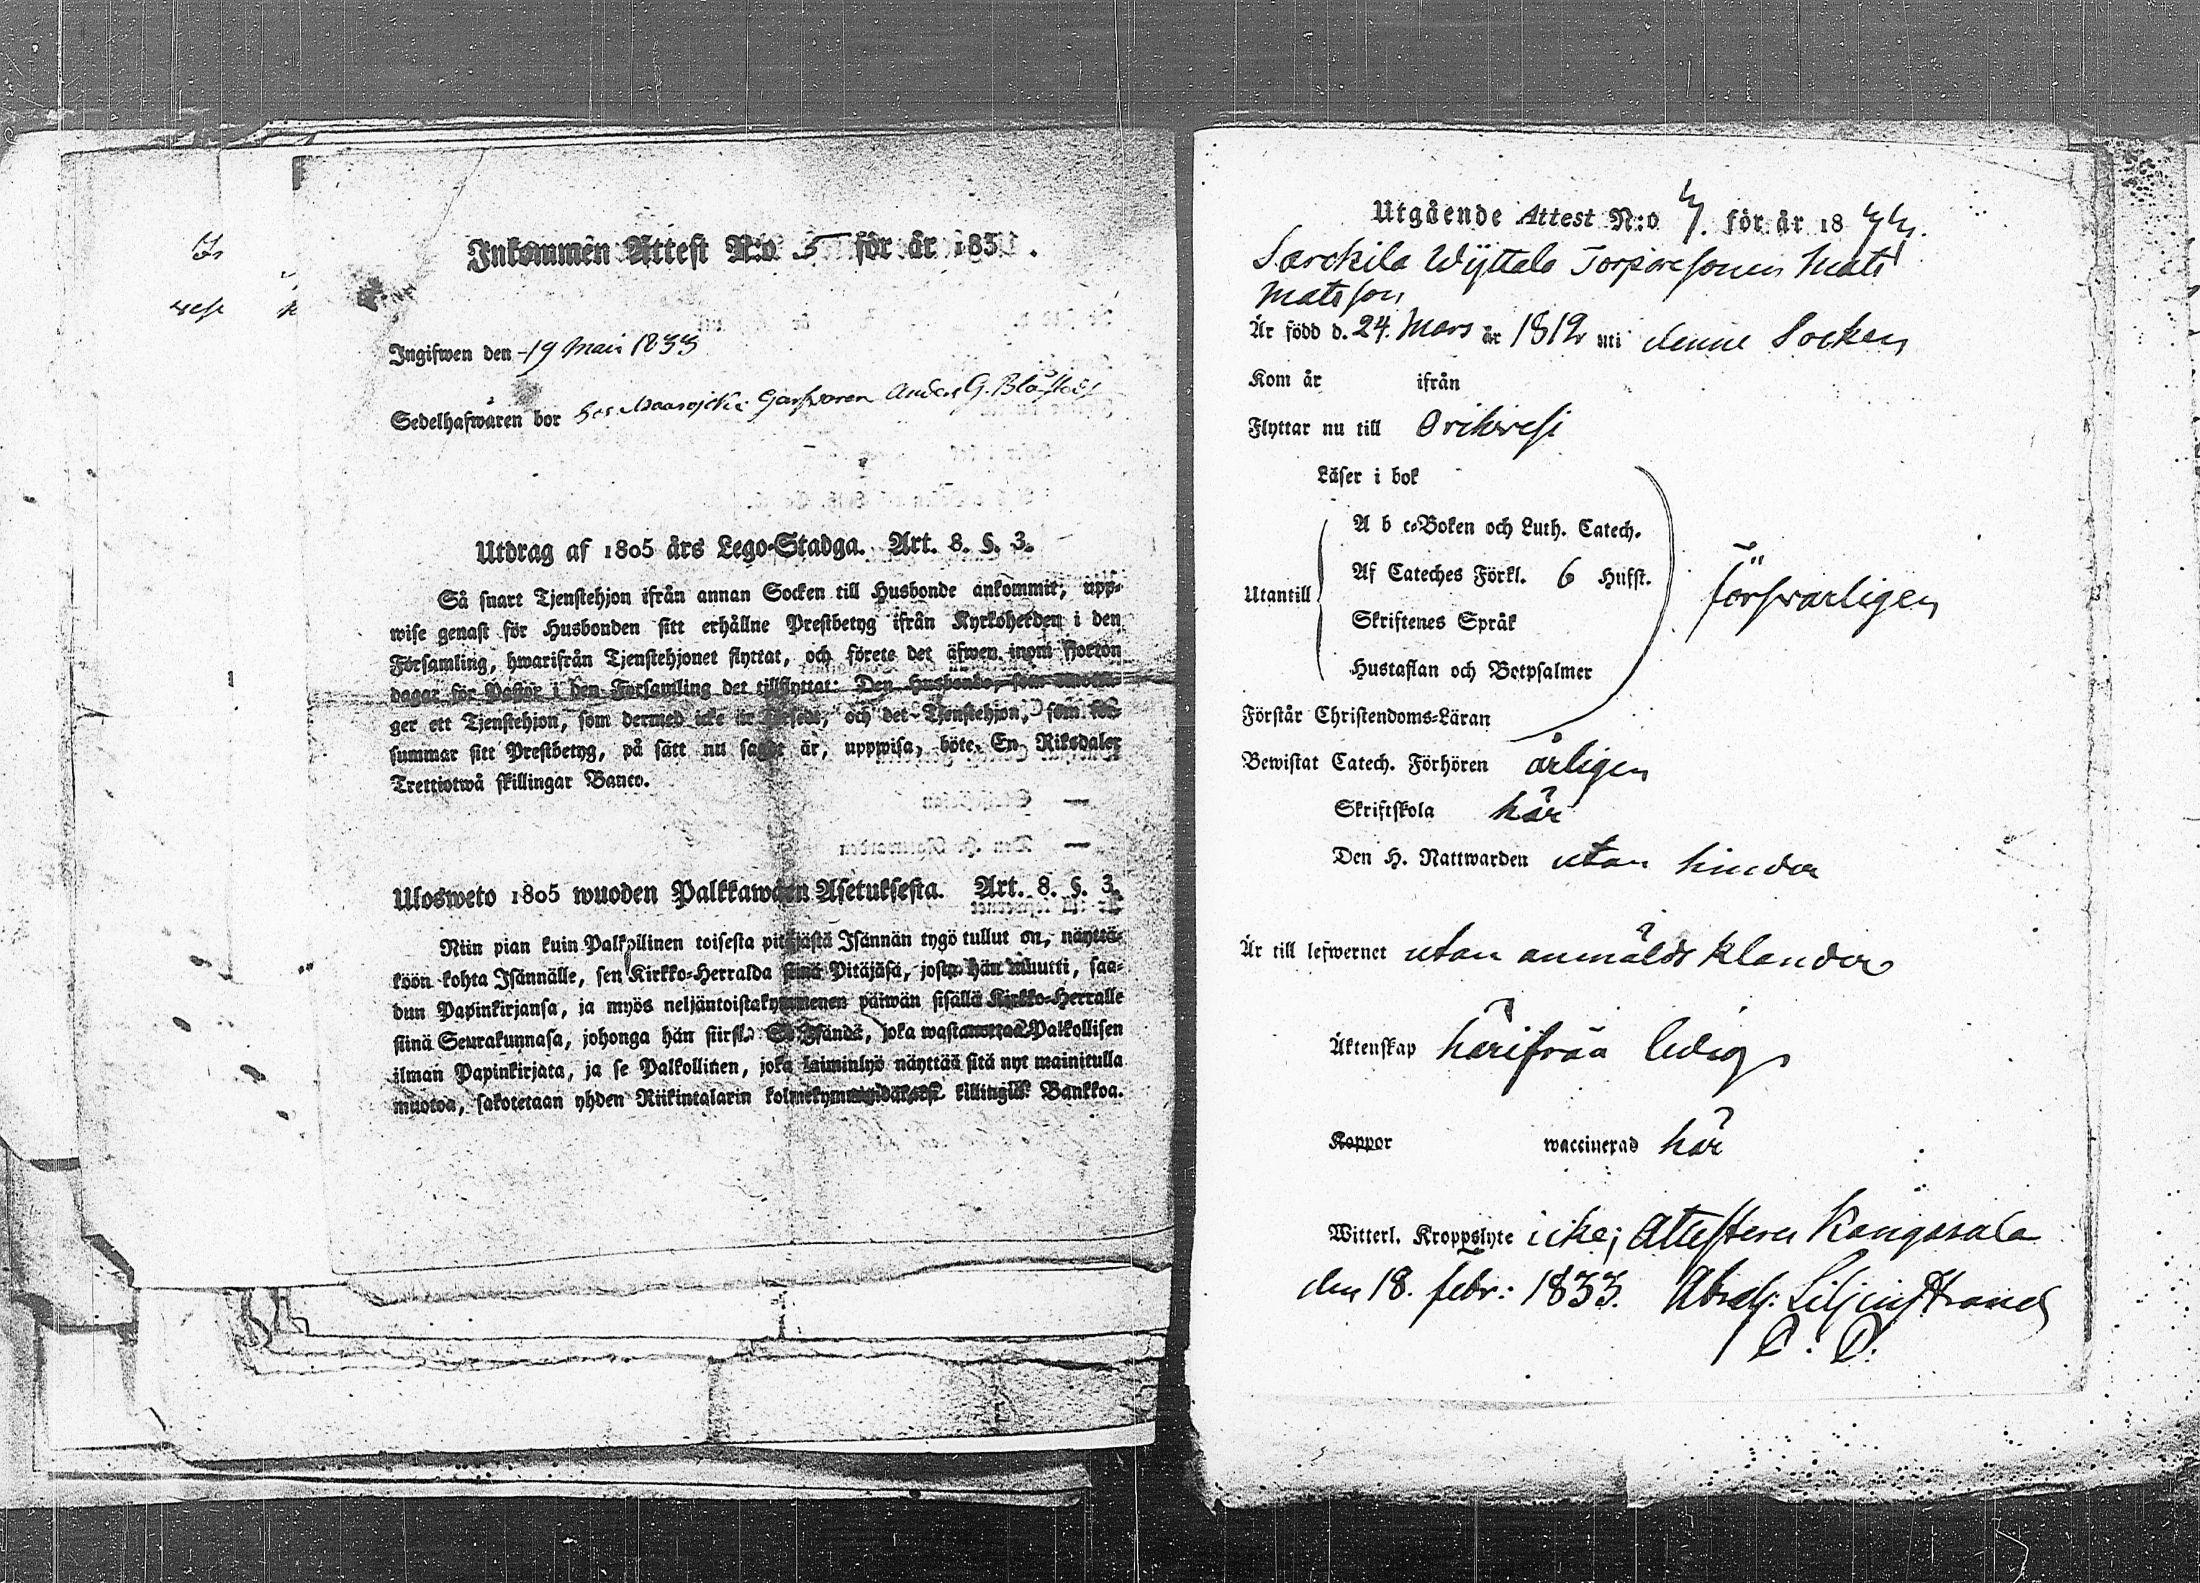 Inkommen Attest N:o 5 för år 183 .
Ingifwen den 19 Maii 1833
Sedelhafwaren bor hos Anders G. Blåfield
Utdrag af 1805 års Lego-Stadga. Art. 8. §. 3.
Så snart Tjenstehjon ifrån annan Socken till Husbonde ankommit, upp-
wise genast för Husbonden sitt erhållne Prestbetyg ifrån Kyrkoherden i den
Församling, hwarifrån Tjenstehjonet flyttat, och förete det äfwen inom Fjorton
dagar för Pastor i den Församling det tillflyttat: Den Husbonde, som emotta-
ger ett Tjenstehjon, som dermed icke är försedt, och det Tjenstehjon, som för-
summar sitt Prestbetyg, på sätt nu sagdt är, uppwisa, böte En Riksdaler
Trettiotwå skillingar Banco.
Ulosweto 1805 wuoden Palkkawäen Asetuksesta. Art. 8. §. 3.
Niin pian kuin Palkollinen toisesta pitäjästä Isännän tygö tullut on, näyttä-
köön kohta Isännälle, sen Kirkko-Herralda siinä Pitäjäsä, josta hän muutti, saa-
dun Papinkirjansa, ja myös neljäntoistakymmenen päiwän sisällä Kirkko-Herralle
siinä Seurakunnasa, johonga hän siirsi. Se Isändä, joka wastanottaa Palkollisen
ilman Papinkirjata, ja se Palkollinen, joka laiminlyö näyttää sitä nyt mainitulla
muotoa, sakotetaan yhden Riikintalarin kolmekymmendäkaksi killingiä Bankkoa.
Utgående Attest N:o 7. för år 18
Sarckila Wyttala Torparesonen Mats
Matsson
Är född d. 24. Mars år 1812 uti denne Socken
Kom år ifrån
Flyttar nu till Orihvesi
Läser i bok
A b c-Boken och Luth. Catech.
Af Cateches Förkl. 6 Hufst.
Utantill
Försvarligen
Skriftenes Språk
Hustaflan och Botpsalmer
Förstår Christendoms-Läran
Bewistat Catech. Förhören årligen
Skriftskola här
Den H. Nattwarden utan hinder
Är till lefwernet utan anmäldt klander
Äktenskap härifrån ledig
Koppor waccinerad här
Witterl. Kroppslyte icke; Attesterar Kangasala
den 18. febr: 1833. Abrah: Liljenstrand